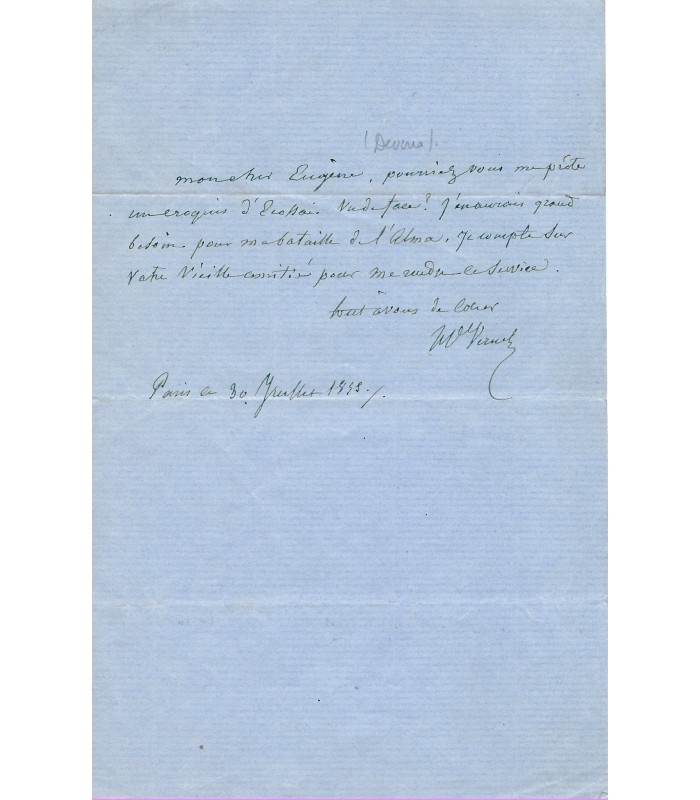 (Deveria).
mon cher Eugène, pourriez vous me prêter
un croquis d'Ecossais vu de face? j'en aurais grand
besoin pour ma bataille de l'Alma. Je compte sur
votre vieille amitié pour me rendre ce service.
tout à vous de coeur
Hce Vernet
Paris ce 30 Juillet 1855./.